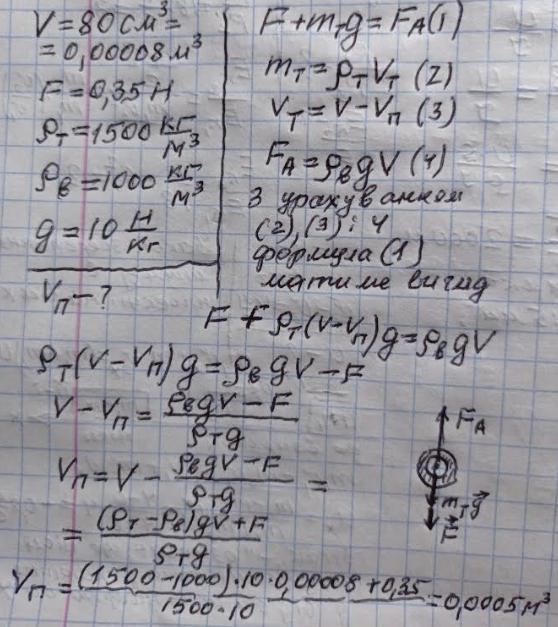 V = 80 см³ =
= 0,00008 м³
F = 0,35 Н
ρт = 1500 кг/м³
ρв = 1000 кг/м³
g = 10 Н/кг
Vп - ?
F + mтg = FA (1)
mт = ρтVт (2)
Vт = V - Vп (3)
FA = ρвgV (4)
З урахуванням
(2), (3) і 4
формула (1)
матиме вигляд
F + ρт(V-Vп)g = ρвgV
ρт(V-Vп)g = ρвgV - F
V - Vп = (ρвgV - F)/(ρтg)
Vп = V - (ρвgV - F)/(ρтg) =
= ((ρт - ρв)gV + F)/(ρтg)
FA
mтg
F
Vп = ((1500 - 1000)·10·0,00008 + 0,35)/(1500·10) = 0,0005 м³